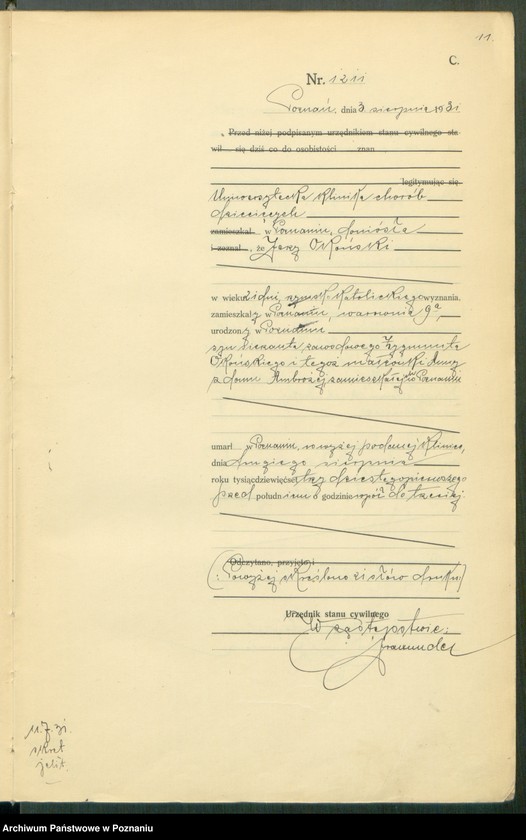 11.
C.
Nr. 1211
Poznań, dnia 3 sierpnia 1931
Przed niżej podpisanym urzędnikiem stanu cywilnego sta
wił się dziś co do osobistości znan
legitymując się
Uniwersytecka Klinika chorób
dziecięcych
zamieszkał w Poznaniu, doniosła
i zeznał, że Jerzy Okoński
w wieku dni, rzymsk. katolickiego wyznania.
zamieszkały w Poznaniu, 9a,
urodzony w Poznaniu
syn sierżanta zawodowego Zygmunta
Okońskiego i tegoż małżonki Anny
z domu Ambrożej, zamieszkałych w Poznaniu
umarł w Poznaniu, w wyżej podanej klinice,
dnia drugiego sierpnia
roku tysiącdziewięćset trzydziestego pierwszego
przed południem o godzinie wpół do trzeciej.
Odczytano, przyjęto i
(Powyżej skreślono słów druku)
Urzędnik stanu cywilnego
W zastępstwie:
skręt
jelit.
Archiwum Państwowe w Poznaniu